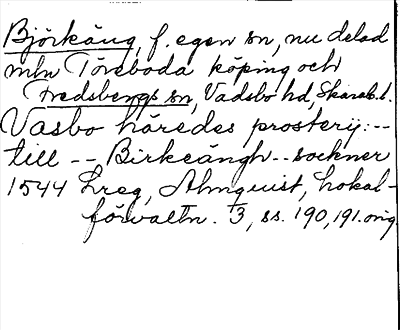 Björkäng, f. egen sn, nu delad
mln Töreboda köping och
Fredsbergs sn, Vadsbo hd, Skarab.l.
Vasbo häredes prosterij: --
till -- Birkeängh -- sockner
1544 Lreg, Almquist, Lokal-
förvaltn. 3, ss. 190, 191. orig.